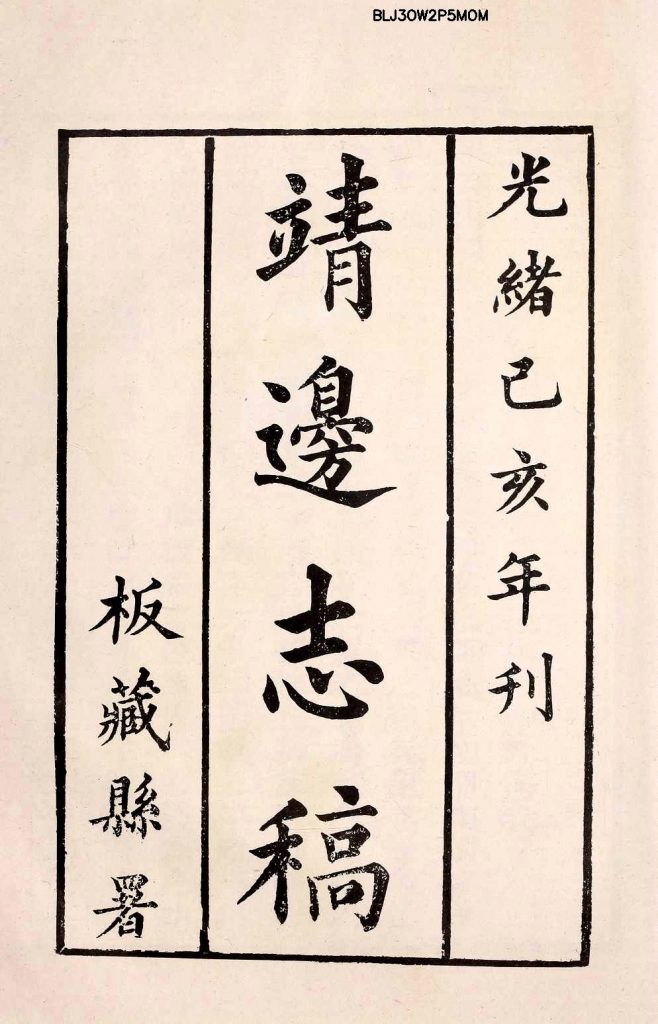 BLJ3OW2P5MOM
光緒己亥年刊
靖邊志稿
板藏縣署